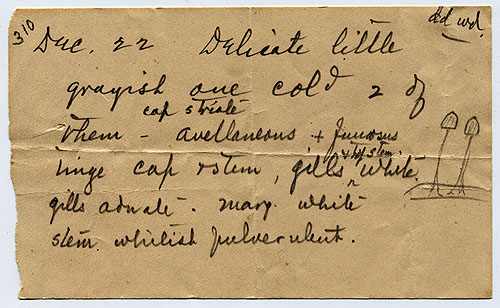 310
dd wd.
Dec. 22 Delicate little
grayish one cold 2 of
cap striate
them - avellaneous + fumosus
tinge cap + stem, gills white,
gills adnate. marg. white
stem whitish pulverulent.